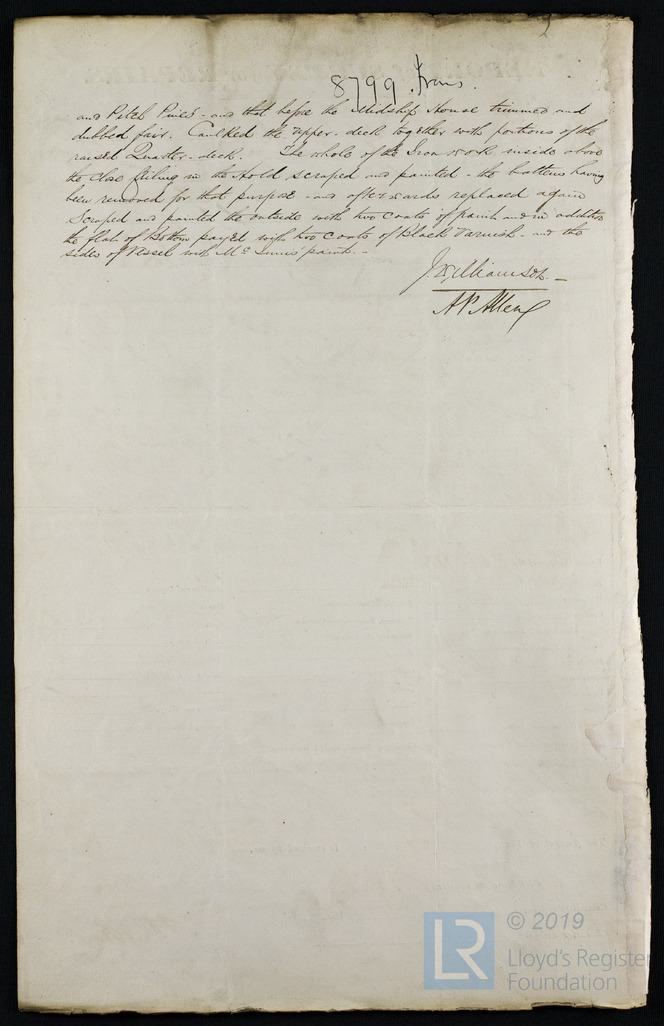 8799 Iron.
and Pitch Pine - and that before the Midship House trimmed and
dubbed fair. Caulked the upper-deck together with portions of the
raised Quarter-deck. The whole of the Iron work inside above
the close ceiling in the Hold scraped and painted - the battens having
been removed for that purpose - and afterwards replaced again
Scraped and painted the outside with two coats of paint and in addition
the flat of Bottom payed with two coats of Black Varnish - and the
sides of Vessel with Mc Innes' paint. -
J. Williamson. -
A P Allen
LR
© 2019
Lloyd's Register
Foundation